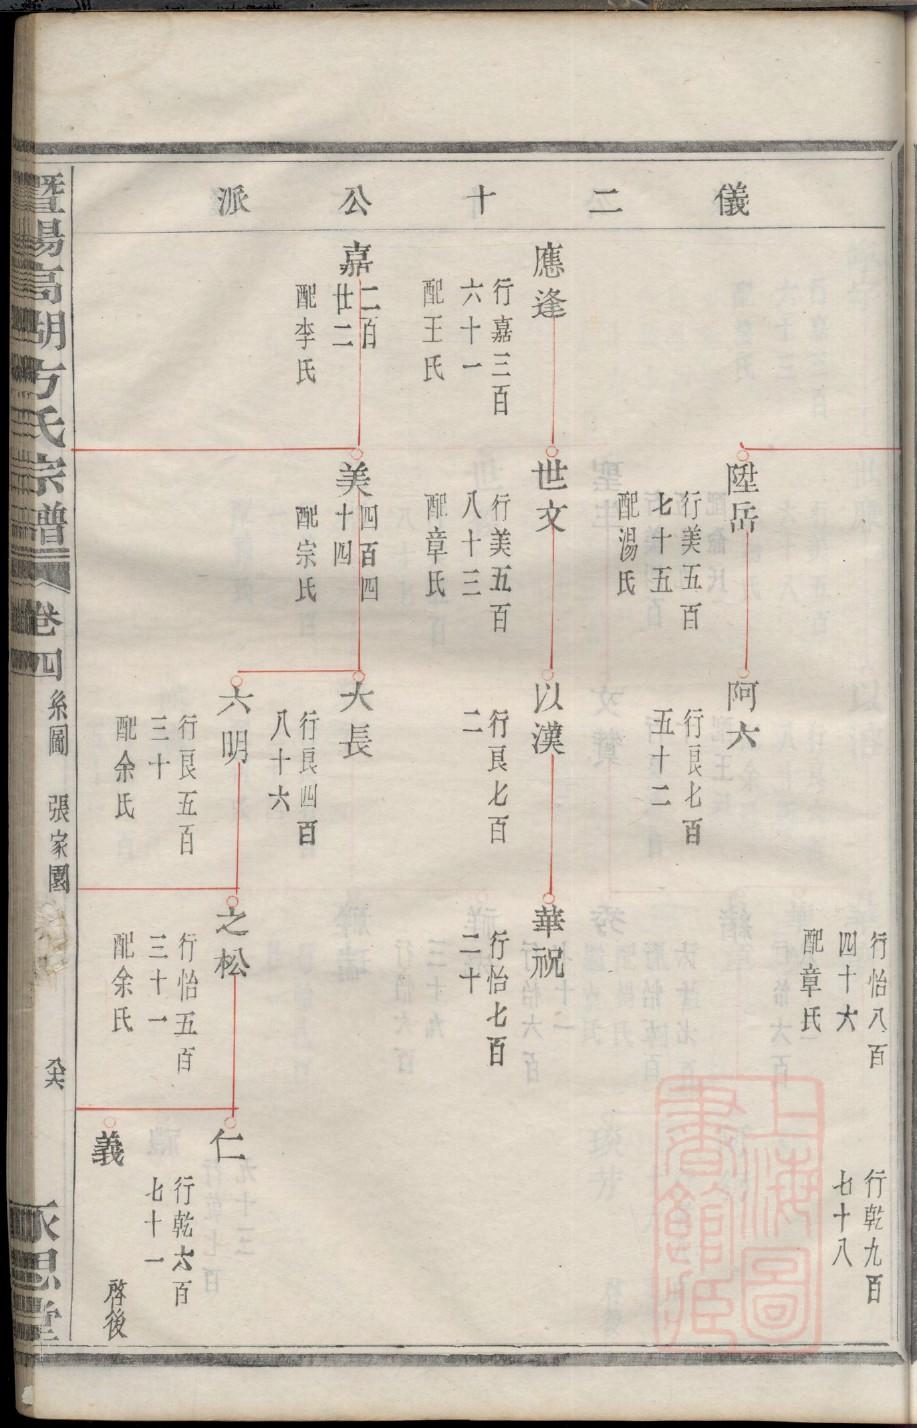 儀二十公派
行怡八百
四十六
配章氏
行乾九百
七十八
陞岳
行美五百
七十五
配湯氏
阿六
行良七百
五十二
應逢
行嘉三百
六十一
配王氏
世文
行美五百
八十三
配章氏
以漢
行良七百
二
華祝
行怡七百
二十
嘉二百
廿二
配李氏
美四百四
十四
配宗氏
大長
行良四百
八十六
六明
行良五百
三十
配余氏
之松
行怡五百
三十一
配余氏
仁
行乾六百
七十一
義
啓後
暨陽高湖方氏宗譜
卷四
系圖 張家園
永思堂
上海圖書館藏